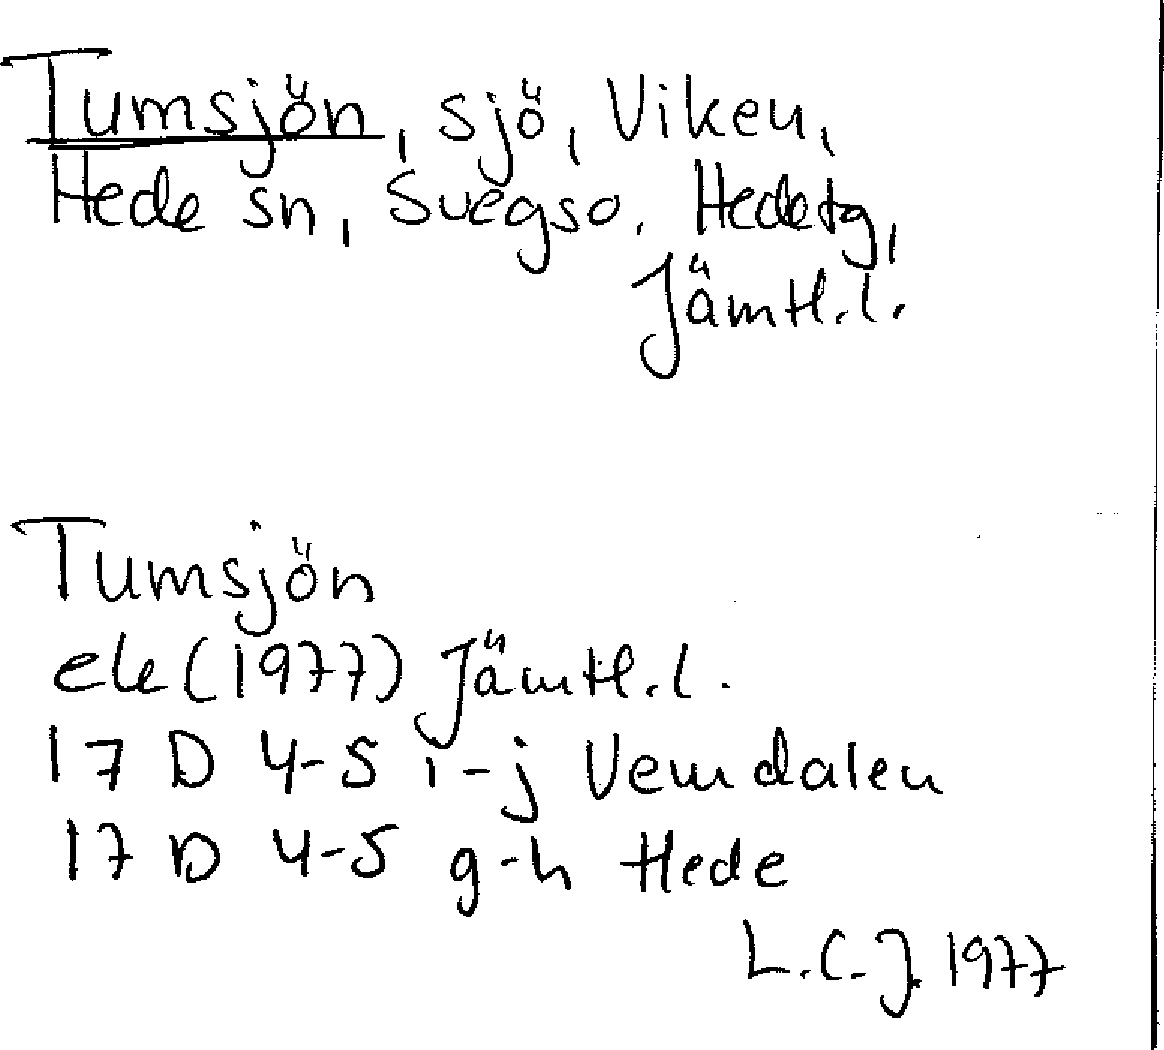 Tumsjön, sjö, Viken,
Hede sn, Svegs o. Hedetg,
Jämtl.l.
Tumsjön
ek (1977) Jämtl.l.
17 D 4-5 i-j Vemdalen
17 D 4-5 g-h Hede
L.C.J. 1977